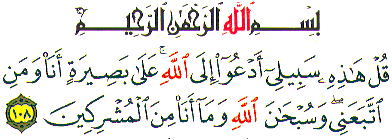 بِسْمِ اللَّهِ الرَّحْمَٰنِ الرَّحِيمِ
قُلْ هَٰذِهِ سَبِيلِي أَدْعُو إِلَى اللَّهِ ۚ عَلَىٰ بَصِيرَةٍ أَنَا وَمَنِ
اتَّبَعَنِي ۖ وَسُبْحَانَ اللَّهِ وَمَا أَنَا مِنَ الْمُشْرِكِينَ ١٠٨